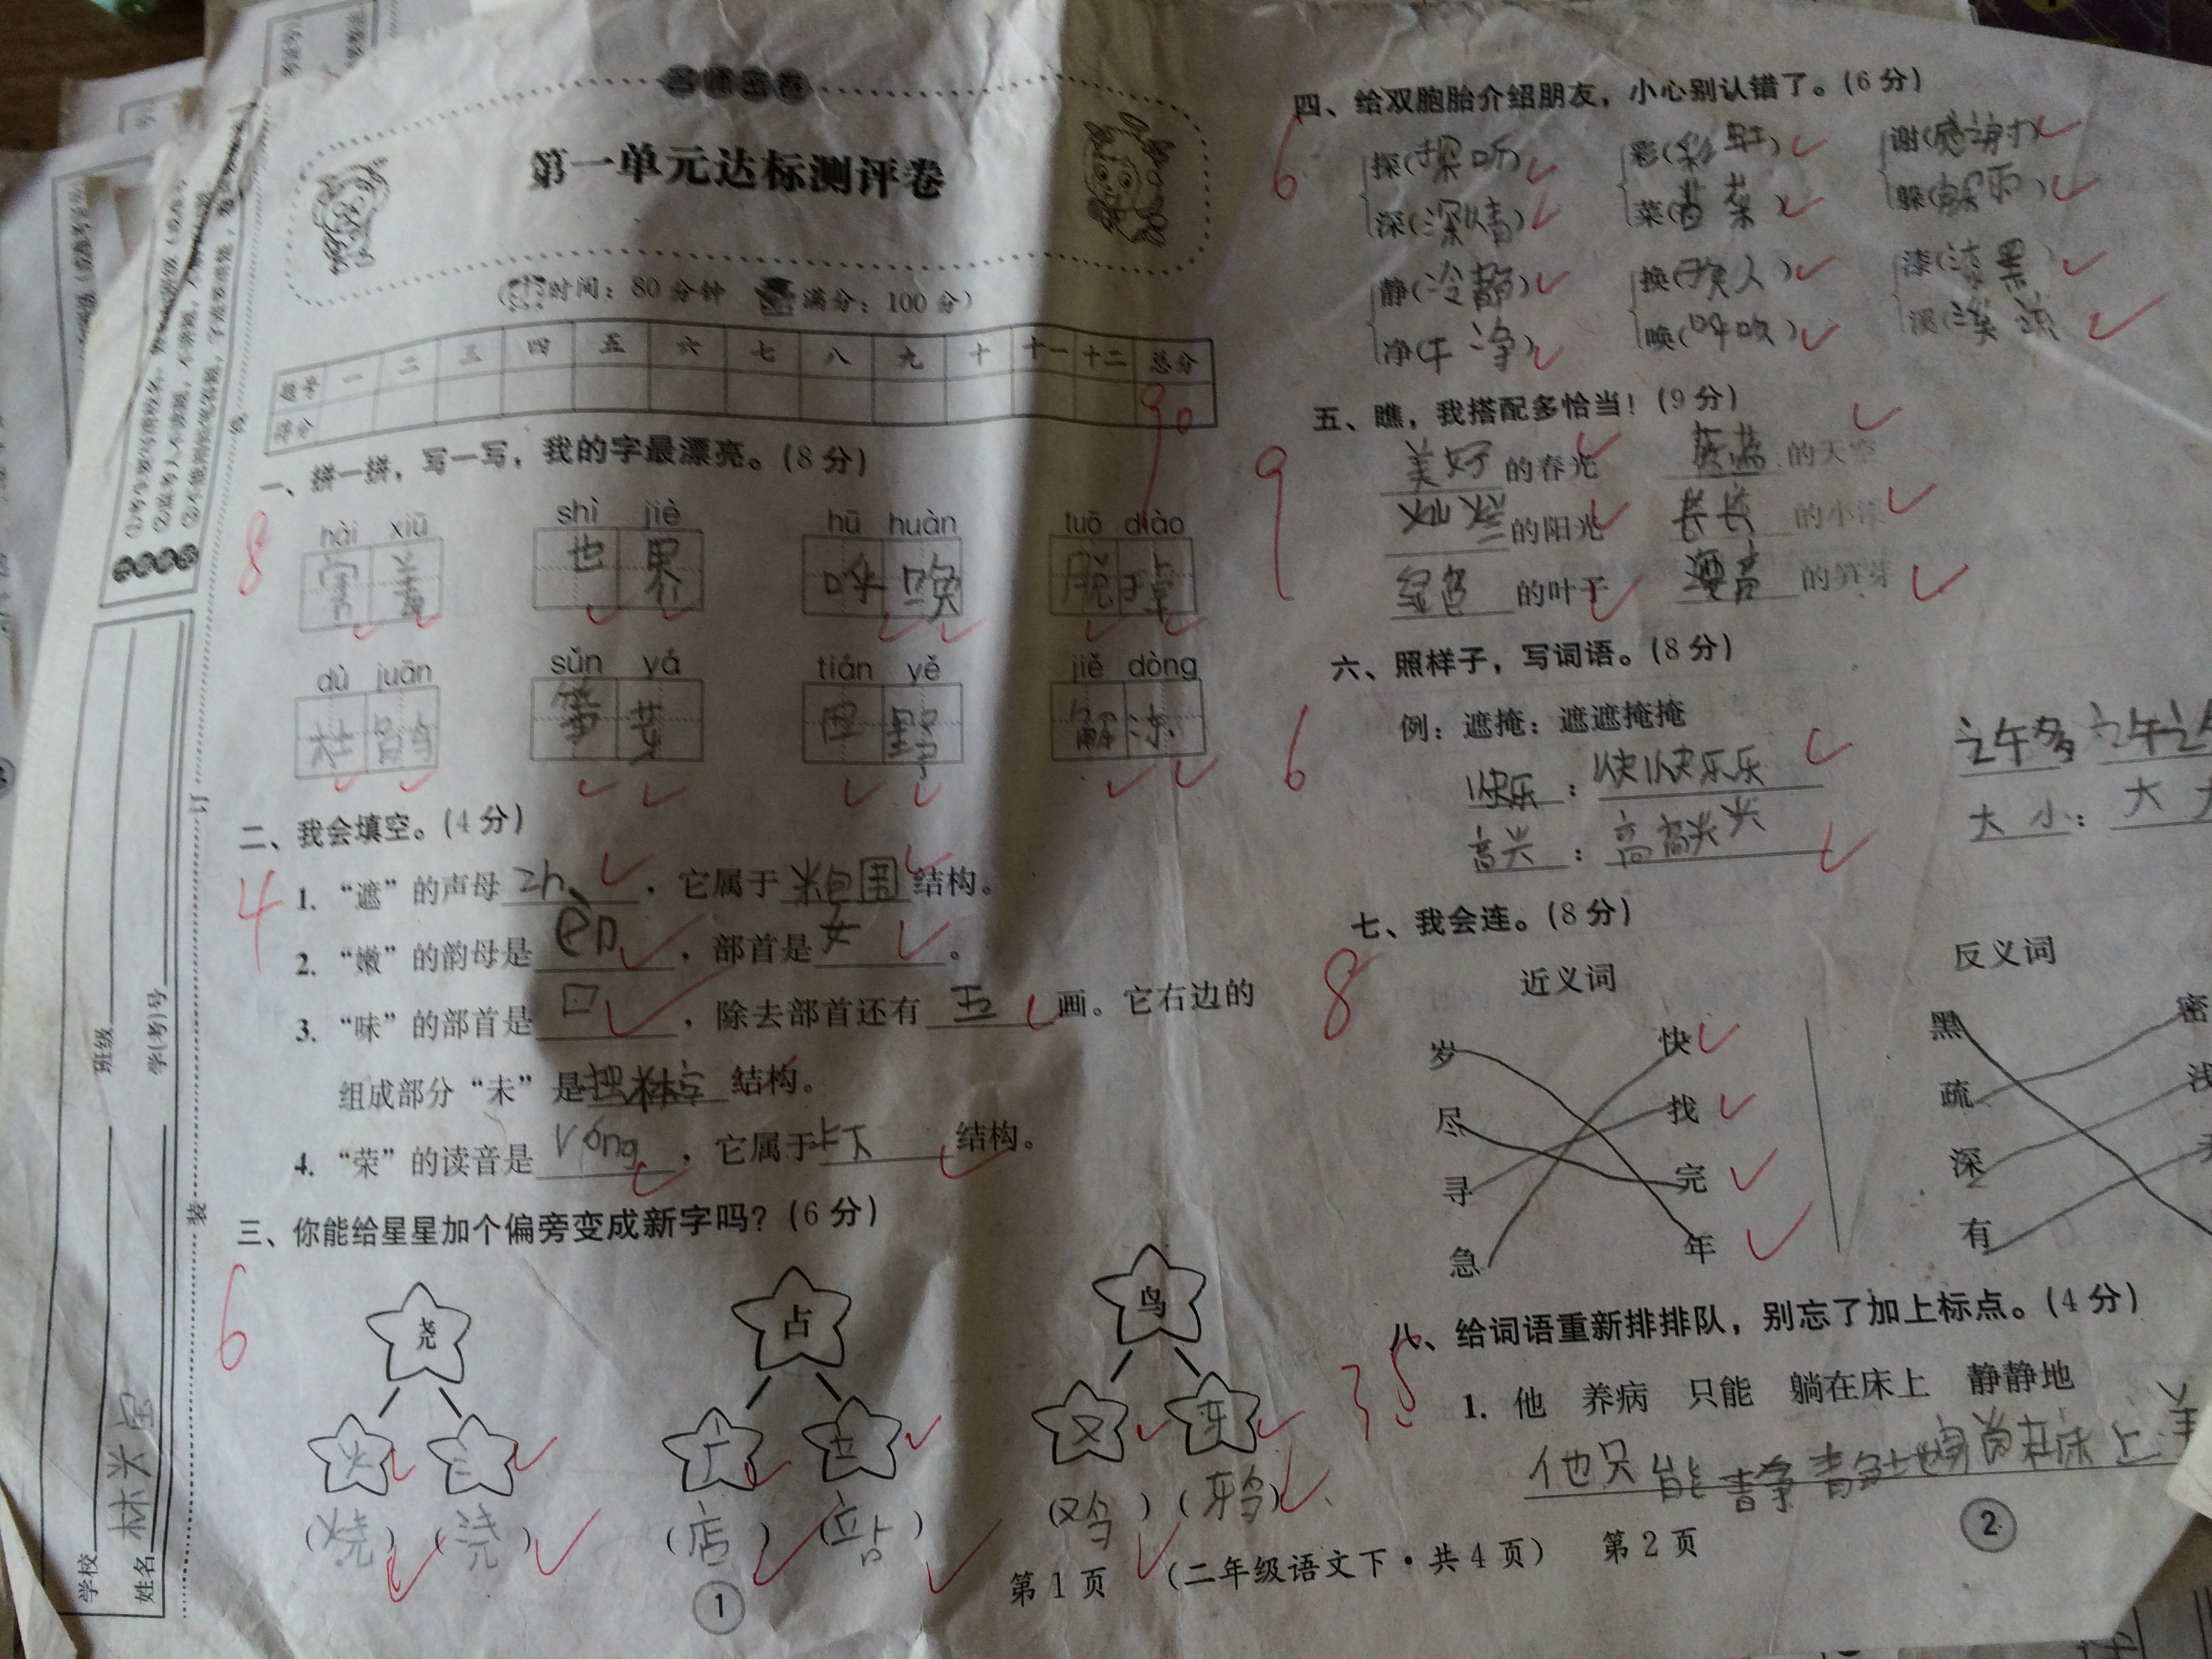 名师密卷
第一单元达标测评卷
(时间：80分钟 满分：100分)
题号 一 二 三 四 五 六 七 八 九 十 十一 十二 总分
得分 90
一、拼一拼，写一写，我的字最漂亮。(8分)
8
hài xiū shì jiè hū huàn tuō diào
害羞 世界 呼唤 脱掉
dù juān sǔn yá tián yě jiě dòng
杜鹃 笋芽 田野 解冻
二、我会填空。(4分)
4
1. “遮”的声母 zh ，它属于 半包围 结构。
2. “嫩”的韵母是 èn ，部首是 女 。
3. “味”的部首是 口 ，除去部首还有 五 画。它右边的
组成部分“未”是 独体字 结构。
4. “荣”的读音是 róng ，它属于 上下 结构。
三、你能给星星加个偏旁变成新字吗？(6分)
6
尧 占 鸟
火 氵 广 立 又 牙
(烧) (浇) (店) (站) (鸡) (鸦)
①
第1页 (二年级语文下·共4页) 第2页
四、给双胞胎介绍朋友，小心别认错了。(6分)
6
探(探听) 彩(彩虹) 谢(感谢)
深(深情) 菜(菜) 躲(躲雨)
静(冷静) 换(换人) 漆(漆黑)
净(干净) 唤(呼唤) 溪(溪流)
五、瞧，我搭配多恰当！(9分)
9
美好 的春光 蓝蓝 的天空
灿烂 的阳光 长长 的小溪
绿色 的叶子 的笋芽
六、照样子，写词语。(8分)
6
例：遮掩：遮遮掩掩
快乐：快快乐乐 许多 许许
高兴：高高兴兴 大小：大大
七、我会连。(8分)
8
近义词 反义词
岁 快 黑 密
尽 找 疏 浅
寻 完 深
急 年 有
八、给词语重新排排队，别忘了加上标点。(4分)
3.5
1. 他 养病 只能 躺在床上 静静地
他只能静静地躺在床上养
②
学校
姓名 林兴宝
班级
学(考)号
装
订